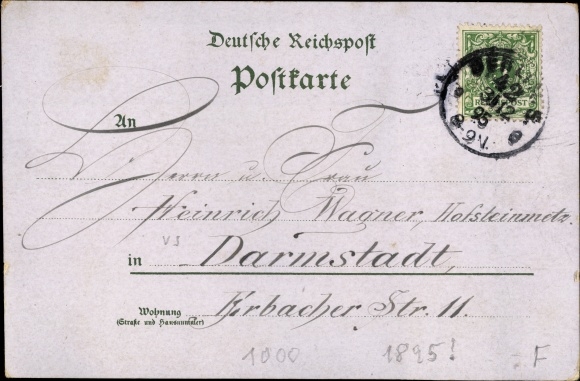 Deutsche Reichspost
Postkarte
BER
31/12
95
8-9N.
An
Herrn u. Frau
Heinrich Wagner, Hofsteinmetz.
V3
in Darmstadt,
Wohnung
(Straße und Hausnummer)
Erbacher Str. 11.
1000 1895! F